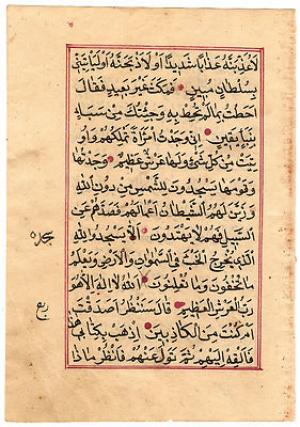 لَأُعَذِّبَنَّهُ عَذَابًا شَدِيدًا أَوْ لَأَذْبَحَنَّهُ أَوْ لَيَأْتِيَنِّي
بِسُلْطَانٍ مُبِينٍ فَمَكَثَ غَيْرَ بَعِيدٍ فَقَالَ
أَحَطْتُ بِمَا لَمْ تُحِطْ بِهِ وَجِئْتُكَ مِنْ سَبَاءٍ
بِنَبَإٍ يَقِينٍ إِنِّي وَجَدْتُ امْرَأَةً تَمْلِكُهُمْ وَأُو
تِيَتْ مِنْ كُلِّ شَيْءٍ وَلَهَا عَرْشٌ عَظِيمٌ وَجَدْتُهَا
وَقَوْمَهَا يَسْجُدُونَ لِلشَّمْسِ مِنْ دُونِ اللَّهِ
وَزَيَّنَ لَهُمُ الشَّيْطَانُ أَعْمَالَهُمْ فَصَدَّهُمْ عَنِ
السَّبِيلِ فَهُمْ لَا يَهْتَدُونَ أَلَّا يَسْجُدُوا لِلَّهِ
سجده
الَّذِي يُخْرِجُ الْخَبْءَ فِي السَّمَوَاتِ وَالْأَرْضِ وَيَعْلَمُ
مَا تُخْفُونَ وَمَا تُعْلِنُونَ اللَّهُ لَا إِلَهَ إِلَّا هُوَ
رَبُّ الْعَرْشِ الْعَظِيمِ قَالَ سَنَنْظُرُ أَصَدَقْتَ
ربع
أَمْ كُنْتَ مِنَ الْكَاذِبِينَ اذْهَبْ بِكِتَابِي هَذَا
فَأَلْقِهْ إِلَيْهِمْ ثُمَّ تَوَلَّ عَنْهُمْ فَانْظُرْ مَاذَا